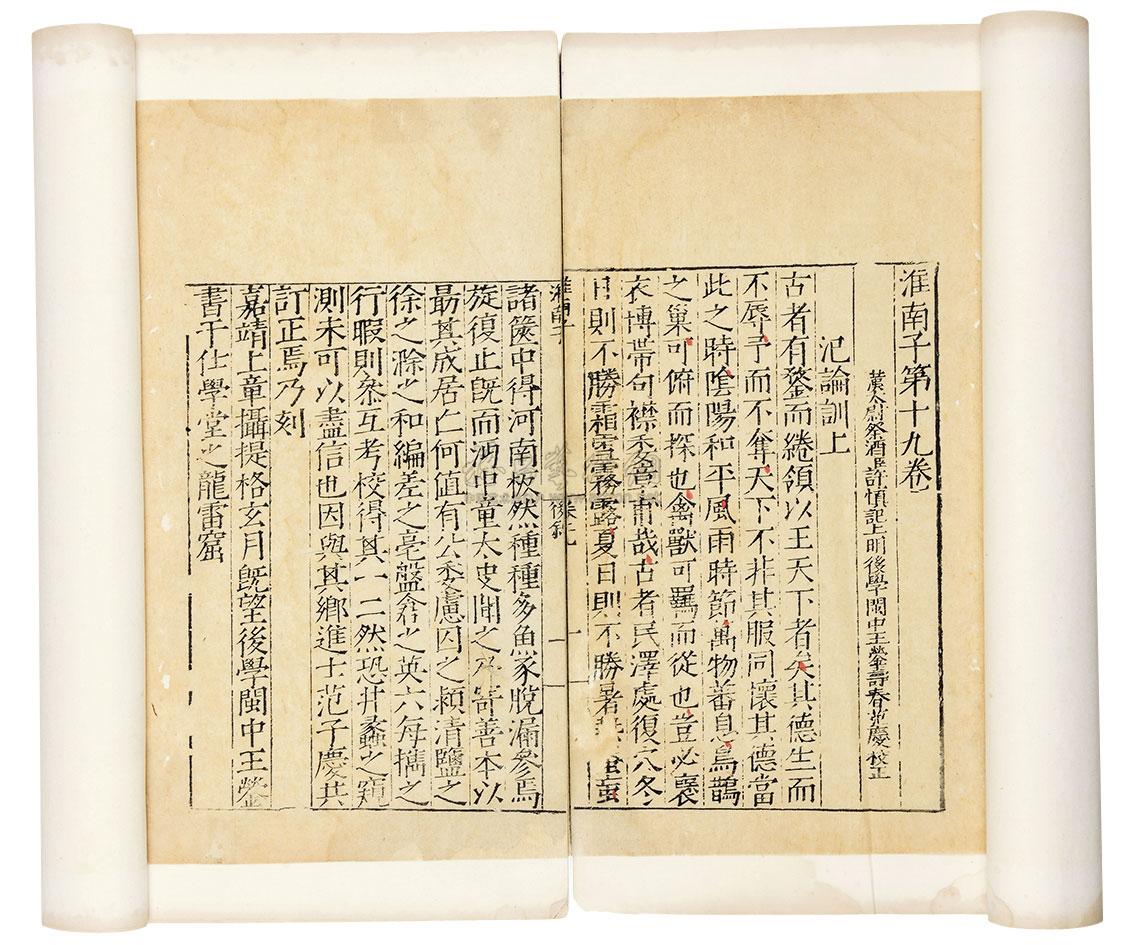 淮南子第十九卷
漢太尉祭酒臣許慎記上明後學閩中王鎣壽春范慶校正
氾論訓上
古者有鍪而綣領以王天下者矣其德生而
不辱予而不奪天下不非其服同懷其德當
此之時陰陽和平風雨時節萬物蕃息烏鵲
之巢可俯而探也禽獸可羈而從也豈必襃
衣博帶句襟委章甫哉古者民澤處復穴冬
日則不勝霜雪霧露夏日則不勝暑蟲
淮南子
卷十九
後敘
一
諸篋中得河南板然種種多魚豕脫漏參焉
旋復止既而沔中童太史聞之乃寄善本以
勗其成居仁何值有公委慮囚之潁清鹽之
徐之滁之和編差之毫盤倉之英六每携之
行暇則叅互考校得其一二然恐井蠡之窺
測未可以盡信也因與其鄉進士范子慶共
訂正焉乃刻
嘉靖上童攝提格玄月既望後學閩中王鎣
書于仕學堂之龍雷窟